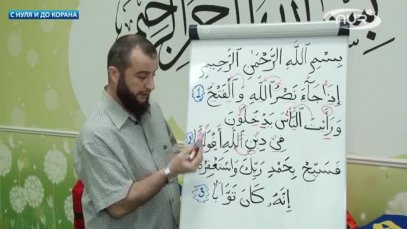 С НУЛЯ И ДО КОРАНА
بِسْمِ اللَّهِ الرَّحْمَٰنِ الرَّحِيمِ
إِذَا جَاءَ نَصْرُ اللَّهِ وَالْفَتْحُ 1
وَرَأَيْتَ النَّاسَ يَدْخُلُونَ
فِي دِينِ اللَّهِ أَفْوَاجًا 2
فَسَبِّحْ بِحَمْدِ رَبِّكَ وَاسْتَغْفِرْهُ
إِنَّهُ كَانَ تَوَّابًا 3